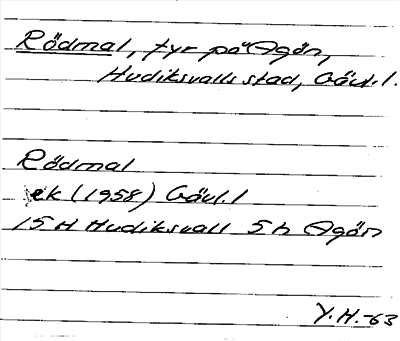 Rödmal, fyr på Agön,
Hudiksvalls stad, Gävl.l.
Rödmal
ek (1958) Gävl.l
15 H Hudiksvall 5 h Agön
Y.H.-63